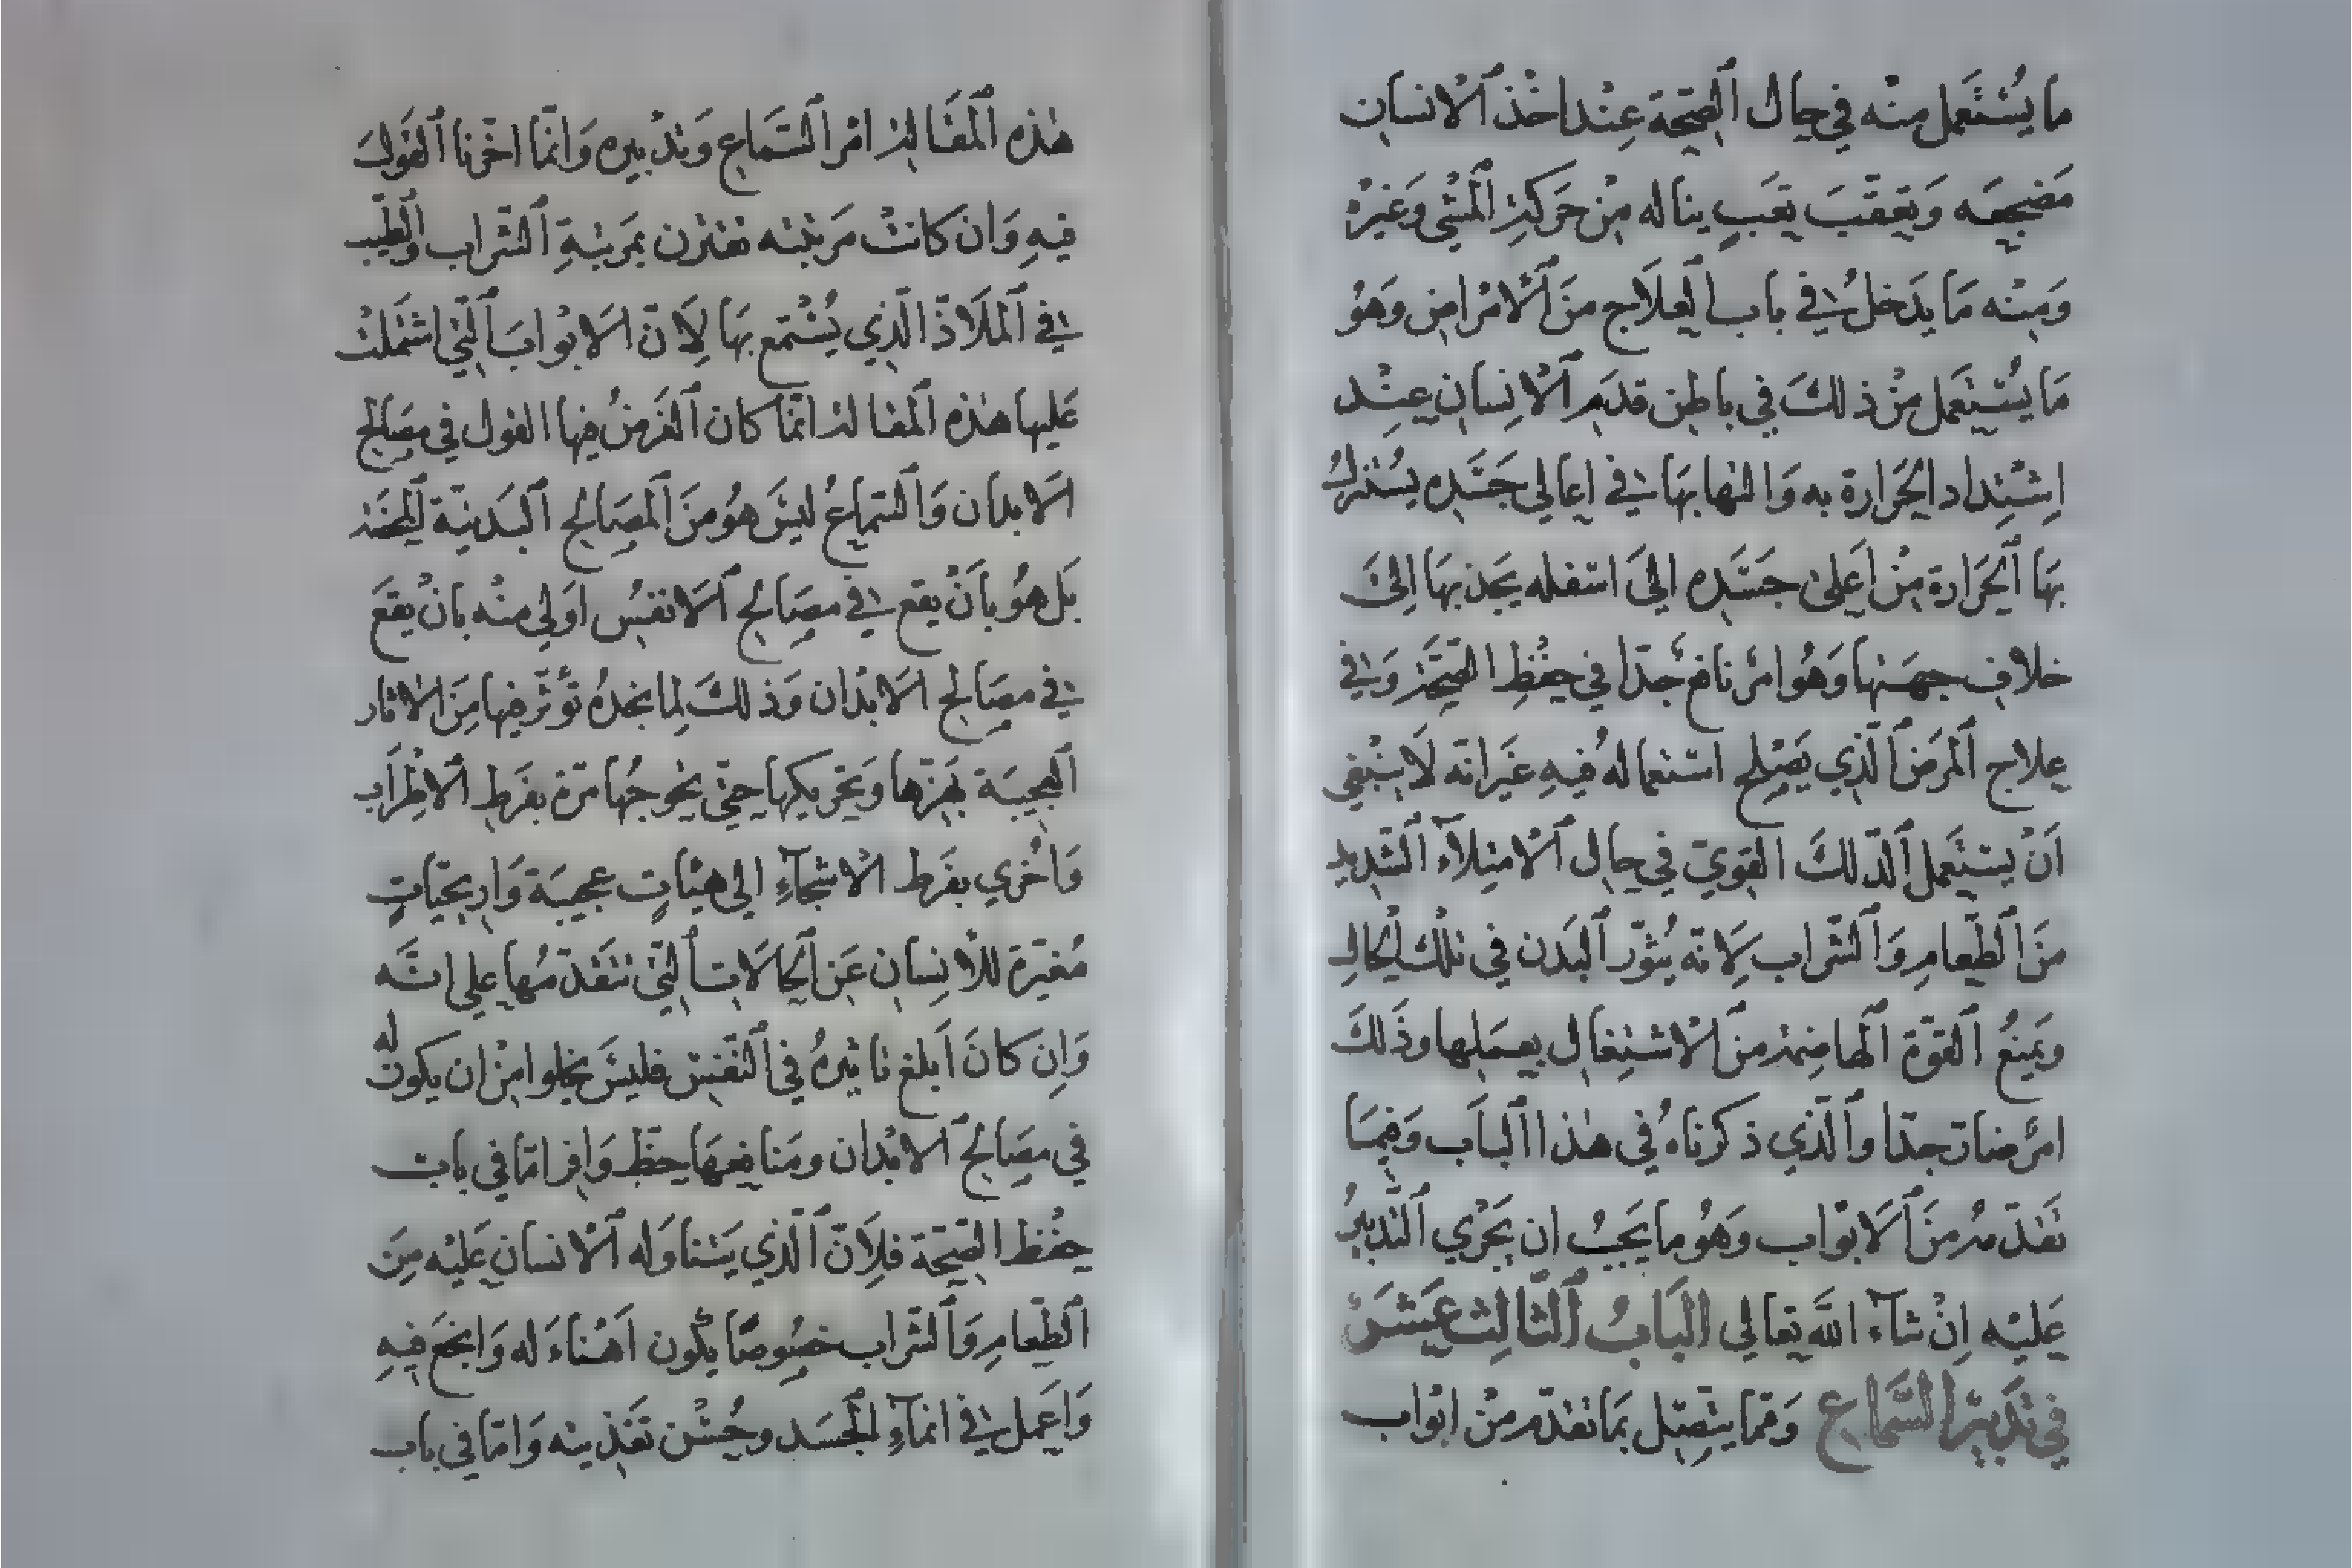 ما يُسْتَعمل منْه في حال الصّحة عِنْد اخْذ الْانسان
مَضجعَه وَبعقبَ تعَبٍ يناله مِنْ حَركةِ المشْي وَغيرْه
وَمنْه مَا يدَخلُ في باب العلَاج منَ الْامْراض وَهوُ
مَا يُستعَمل منْ ذلكَ في باطن قدَم الْانِسان عِنْد
اِشتِداد الحَرارة به وَالتهابهَا في اعالي جَسَده يسُتنزلُ
بهَا الحَرَارة مِنْ اَعلىٰ جسَده الىَ اسْفله بجَذبهَا الىَ
خلاف جهَتهٰا وَهوُ امرٌ نافعٌ جدّا في حفْظِ الصّحّة وَفي
علاج المرَض الّذي يَصْلح استعماله فيهِ غيَر انّه لَا ينْبغي
اَنْ يستَعمل الدّلكَ القوَيّ في حال الْامتِلآء الشّديد
منَ الطّعام وَالشّراب لِاَنّه يُثوّر البَدن في تلْك الحال
ويَمنعُ القوّة الهاضمة منَ الْاشتِغال بعمَلها وذَلكَ
امرٌ ضارّ جدّا وَالّذي ذكرناهُ في هٰذا البَاب وَفيمَا
تقَدّمهُ منَ الَابوْاب وَهوُ ما يَجبُ ان يَجْري التّدبيرُ
عَليْه اِنْ شآء اللّه تعَالي البَابُ الثّالِث عَشَرَ
في تدَبير السَّماع وَممّا يتصّل بمَا تقدّم منْ ابْواب
هٰذه المقَالة امْر السّمَاع وَتدْبيره وَانّما اخّرنا القوَلَ
فيهِ وَان كانتْ مَرتبَته تقترن بمَرتبةِ الشّراب والطّيب
في الملَاذّ الّذي يُسْتمتع بهَا لِاَنّ الَابوْابَ الّتي اشتملتْ
عَليها هٰذه المقالة انّمَا كان الغَرضُ فيها القول في مصَالح
الَابدان وَالسّماعُ ليسَ هوُ منَ المصَالح البَدنيّة المحَضة
بَل هوُ بأَنْ يقع في مصَالح الَانفسُ اوَلي منْه بانْ يقعَ
في مصَالح الَابدْان وَذلكَ لِما نجَدهُ تؤَثّر فيها مِنَ الاٰثار
العجيبَة بهَزّها وَتحَريكها حتيّ يخُرجُها مرّة بفَرط الْاطْرَاب
وَاُخْري بفَرط الْاشجآءِ الي هيْئآتٍ عجيبَة وَاريَحيّاتٍ
مُغيّرة للْانِسان عَن الحالَات الّتي تتَقدّمُها علي انّه
وَاِن كانَ اَبلغ تاثيرهُ في النّفْس فليسَ يخلوا منْ ان يكون له
في مصَالح الابْدان ومَنافعهَا حظّ وَافر امّا في باب
حِفْظ الصّحّة فلِاَنّ الّذي يتَناوَله الْانسان عَليْه مِنَ
الطّعام وَالشّراب خصُوصًا يكون اَهْناءَ له وَانجَع فيهِ
وَاعَمل في انمآءِ الجَسَد وحُسْن تغَذيته وَامّا في باب